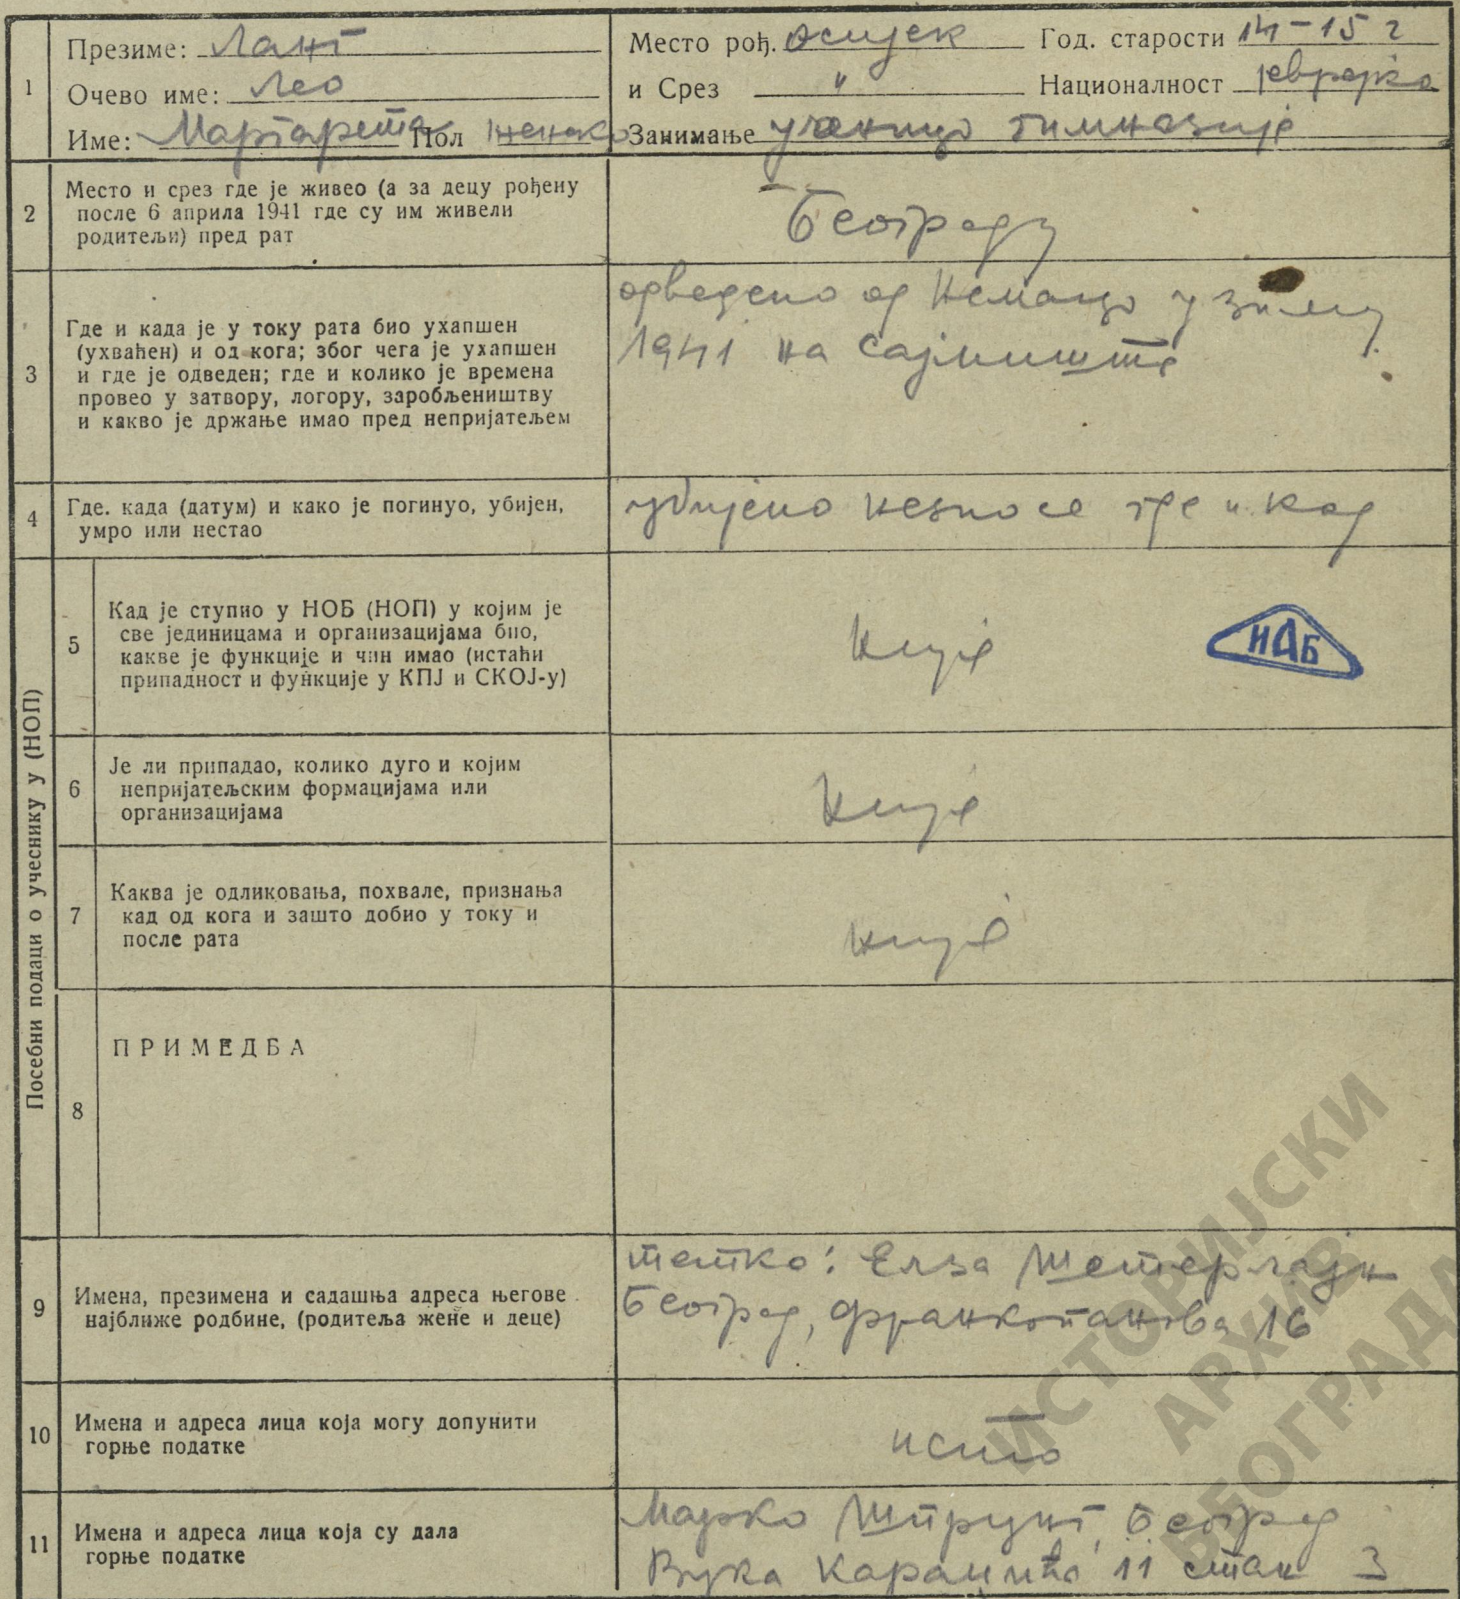 1
Презиме: Ланг
Очево име: Лео
Име: Маргарета Пол женско
Место рођ. Осијек Год. старости 14-15 г
и Срез " Националност јеврејка
Занимање ученица гимназије
2
Место и срез где је живео (а за децу рођену
после 6 априла 1941 где су им живели
родитељи) пред рат
Београду
3
Где и када је у току рата био ухапшен
(ухваћен) и од кога; због чега је ухапшен
и где је одведен; где и колико је времена
провео у затвору, логору, заробљеништву
и какво је држање имао пред непријатељем
одведена од Немаца у зиму
1941 на Сајмиште
4
Где. када (датум) и како је погинуо, убијен,
умро или нестао
убијена незна се где и кад
Посебни подаци о учеснику у (НОП)
5
Кад је ступио у НОБ (НОП) у којим је
све јединицама и организацијама био,
какве је функције и чин имао (истаћи
припадност и функције у КПЈ и СКОЈ-у)
није
ИАБ
6
Је ли припадао, колико дуго и којим
непријатељским формацијама или
организацијама
није
7
Каква је одликовања, похвале, признања
кад од кога и зашто добио у току и
после рата
није
8
ПРИМЕДБА
9
Имена, презимена и садашња адреса његове
најближе родбине, (родитеља жене и деце)
тетка: Елза Штерлајн
Београд, Франкопанова 16
10
Имена и адреса лица која могу допунити
горње податке
исто
11
Имена и адреса лица која су дала
горње податке
Марко Шпрунг, Београд
Вука Караџића 11 стан 3
ИСТОРИЈСКИ
АРХИВ
БЕОГРАДА